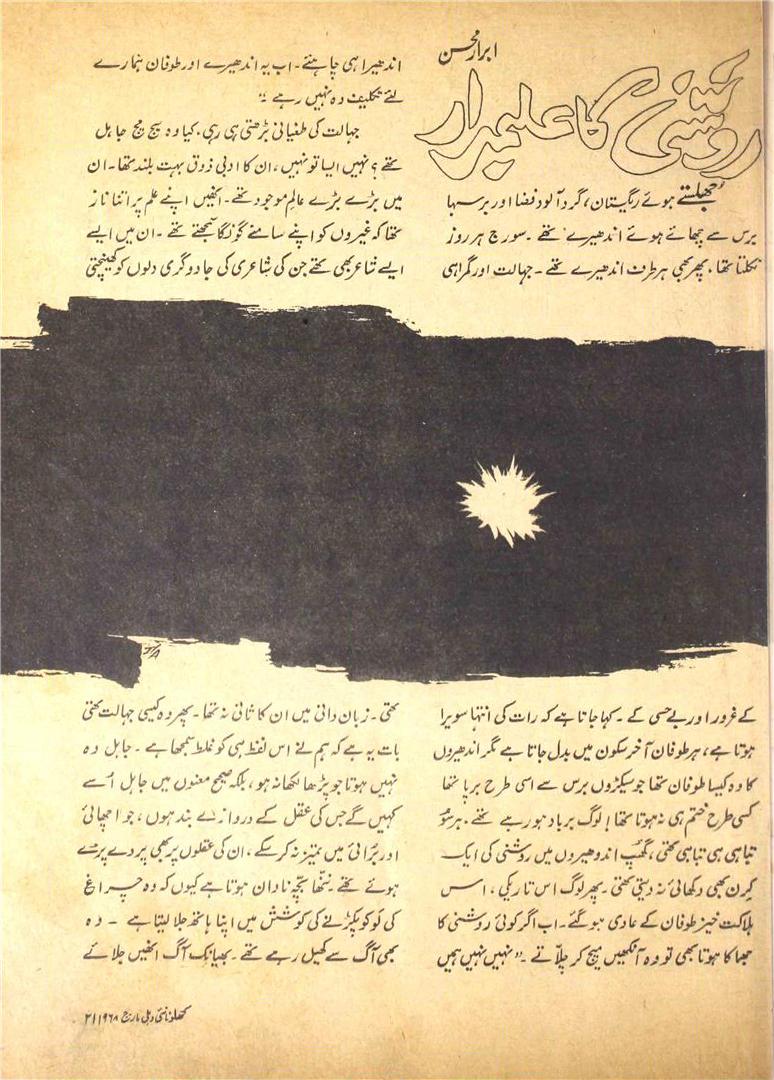 ابرار محسن
روشنی کا علمبردار
جھلستے ہوئے ریگستان، گرد آلود فضا اور برسہا
برس سے چھائے ہوئے اندھیرے تھے۔ سورج ہر روز
نکلتا تھا، پھر بھی ہر طرف اندھیرے تھے۔ جہالت اور گمراہی
کے غرور اور بے حسی کے۔ کہا جاتا ہے کہ رات کی انتہا سویرا
ہوتا ہے، ہر طوفان آخر سکون میں بدل جاتا ہے مگر اندھیروں
کا وہ کیسا طوفان تھا جو سیکڑوں برس سے اسی طرح برپا تھا
کسی طرح ختم ہی نہ ہوتا تھا! لوگ برباد ہو رہے تھے۔ ہر سُو
تباہی ہی تباہی تھی، گھپ اندھیروں میں روشنی کی ایک
کرن بھی دکھائی نہ دیتی تھی۔ پھر لوگ اس تاریکی، اس
ہلاکت خیز طوفان کے عادی ہو گئے۔ اب اگر کوئی روشنی کا
جھماکا ہوتا بھی تو وہ آنکھیں میچ کر چلّاتے۔ "نہیں نہیں ہمیں
اندھیرا ہی چاہئے۔ اب یہ اندھیرے اور طوفان ہمارے
لئے تکلیف دہ نہیں رہے"
جہالت کی طغیانی بڑھتی ہی رہی۔ کیا وہ سچ مچ جاہل
تھے؟ نہیں ایسا تو نہیں، ان کا ادبی ذوق بہت بلند تھا۔ ان
میں بڑے بڑے عالم موجود تھے۔ انھیں اپنے علم پر اتنا ناز
تھا کہ غیروں کو اپنے سامنے گونگا سمجھتے تھے۔ ان میں ایسے
ایسے شاعر بھی تھے جن کی شاعری کی جادوگری دلوں کو کھینچتی
تھی۔ زبان دانی میں ان کا ثانی نہ تھا۔ پھر وہ کیسی جہالت تھی
بات یہ ہے کہ ہم نے اس لفظ ہی کو غلط سمجھا ہے۔ جاہل وہ
نہیں ہوتا جو پڑھا لکھا نہ ہو، بلکہ صحیح معنوں میں جاہل اُسے
کہیں گے جس کی عقل کے دروازے بند ہوں، جو اچھائی
اور برائی میں تمیز نہ کر سکے، ان کی عقلوں پر بھی پردے پڑے
ہوئے تھے۔ ننّھا بچّہ نادان ہوتا ہے کیوں کہ وہ چراغ
کی لو کو پکڑنے کی کوشش میں اپنا ہاتھ جلا لیتا ہے۔ وہ
بھی آگ سے کھیل رہے تھے۔ بھیانک آگ انھیں جلائے
کھلونا نئی دہلی مارچ ۱۹۶۸ ۲۱